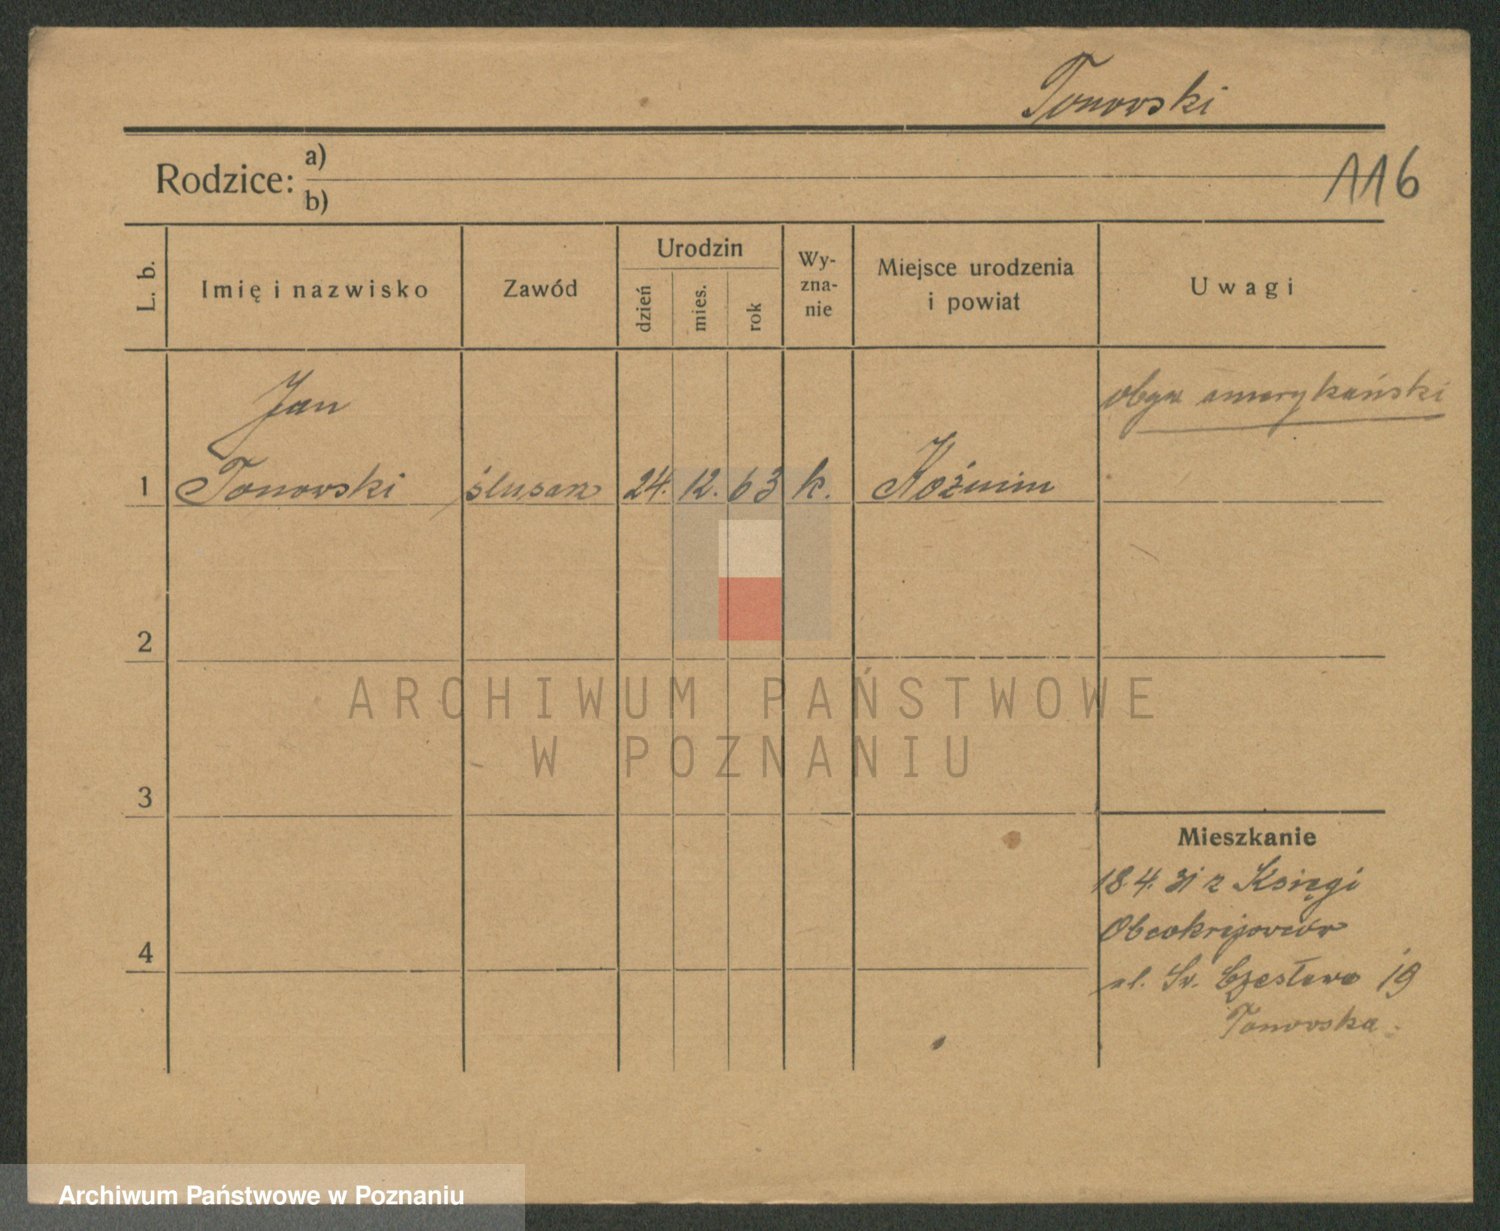 Tonovski
Rodzice:
a)
b)
116
L. b.
Imię i nazwisko
Zawód
Urodzin
dzień
mies.
rok
Wy-
zna-
nie
Miejsce urodzenia
i powiat
Uwagi
Jan
1 Tonovski ślusarz 24. 12. 63 k. Koźmim
obyw amerykański
2
ARCHIWUM PAŃSTWOWE
W POZNANIU
3
Mieszkanie
18.4.31 z Księgi
Obcokrajowców
4
ul. Św. Czesława 19
Tonovska.
Archiwum Państwowe w Poznaniu